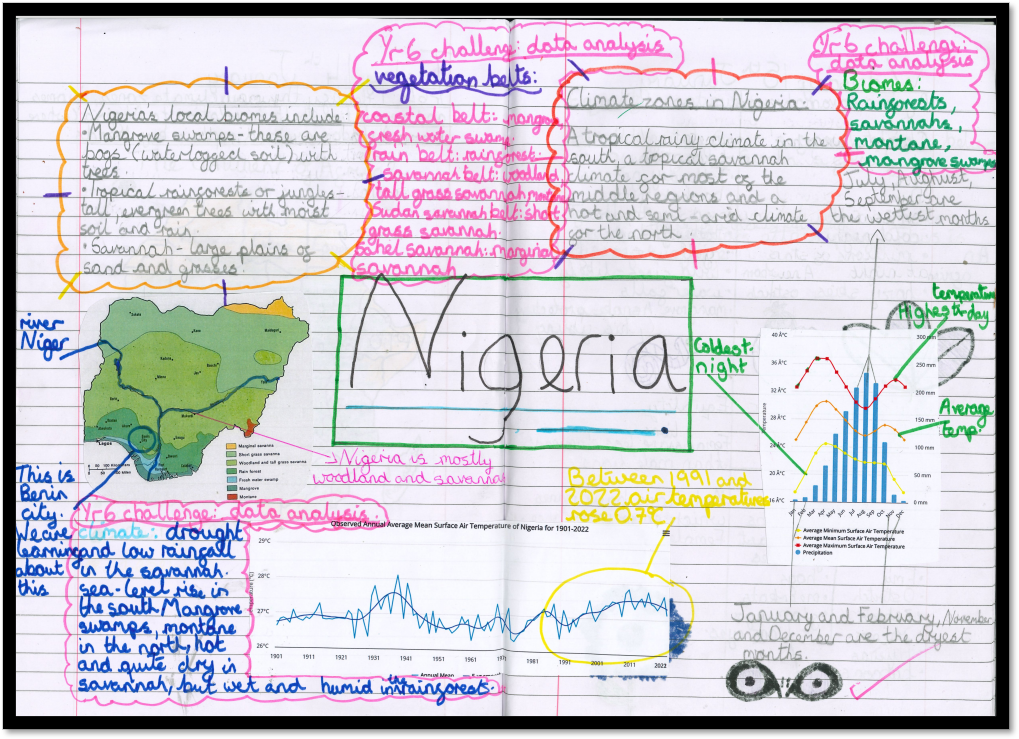 Yr6 challenge: data analysis
vegetation belts:
coastal belt: mangrove
fresh water swamp
rain belt: rainforest.
savannah belt: woodland
tall grass savannah
Sudan savannah belt: short
grass savannah.
Sahel savannah: marginal
savannah
Nigeria's local biomes include:
•Mangrove swamps-these are
bogs (waterlogged soil) with
trees.
•Tropical rainforests or jungles-
tall, evergreen trees with moist
soil and rain.
•Savannah-large plains of
sand and grasses.
Climate zones in Nigeria:
A tropical rainy climate in the
south, a topical savannah
climate for most of the
middle regions and a
hot and semi-arid climate
for the north.
Yr6 challenge:
data analysis
Biomes:
Rainforests,
savannahs,
montane,
mangrove swamps
July, August,
September are
the wettest months
river
Niger
Nigeria
Lagos
Marginal savanna
Short grass savanna
Woodland and tall grass savanna
Rain forest
Fresh water swamp
Mangrove
Montane
→Nigeria is mostly
woodland and savannah
This is
Benin
city.
We are
learning
about
this
Coldest-
night
temperature
Highest-day
Average
temp.
40 Å°C
32 Å°C
24 Å°C
16 Å°C
Temperature
300 mm
250 mm
200 mm
150 mm
100 mm
50 mm
0 mm
Jan
Feb
Mar
Apr
May
Jun
Jul
Aug
Sep
Oct
Nov
Dec
Average Minimum Surface Air Temperature
Average Mean Surface Air Temperature
Average Maximum Surface Air Temperature
Precipitation
Yr6 challenge: data analysis.
climate: drought
and low rainfall
in the savannah.
sea-level rise in
the south Mangrove
swamps, montane
in the north, hot
and quite dry in
savannah, but wet and humid in the rainforests.
Between 1991 and
2022 air temperatures
rose 0.7°C
Observed Annual Average Mean Surface Air Temperature of Nigeria for 1901-2022
29°C
28°C
27°C
26°C
1901
1911
1921
1931
1941
1951
1961
1981
1991
2001
2011
2022
Annual Mean
January and February, November
and December are the dryest
months.